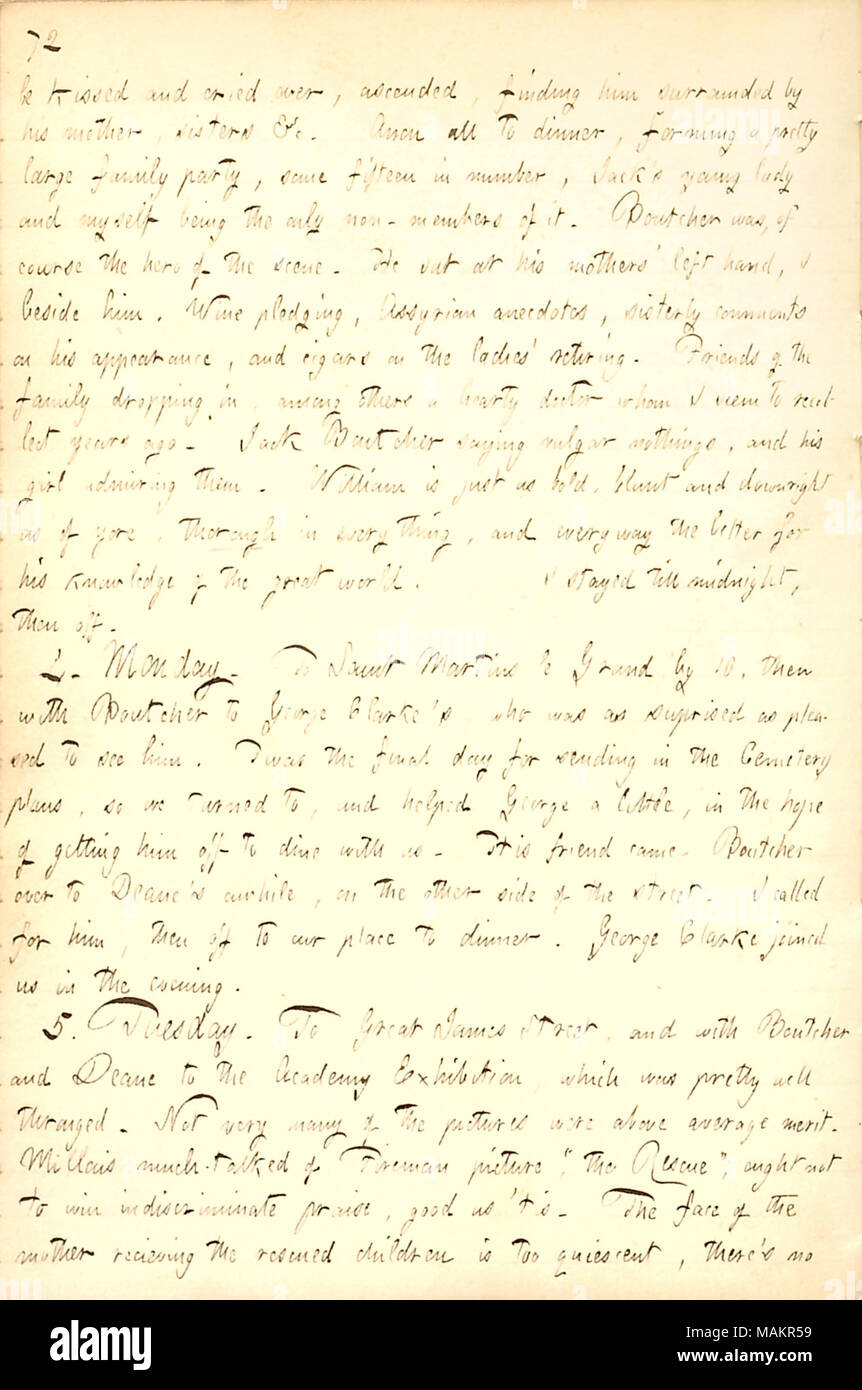 72
be kissed and cried over, ascended, finding him surrounded by
his mother, sisters &c. Anon all to dinner, forming a pretty
large family party, some fifteen in number, Jack's young lady
and myself being the only non-members of it. Boutcher was, of
course the hero of the scene. He sat at his mothers' left hand, I
beside him. Wine pledging, Assyrian anecdotes, sisterly comments
on his appearance, and cigars on the ladies' retiring. Friends of the
family dropping in, among others a hearty doctor whom I seem to recol-
lect years ago. Jack Boutcher saying vulgar nothings, and his
girl admiring them. William is just as bold, blunt and downright
as of yore, thorough in every thing, and every way the better for
his knowledge of the great world. I stayed till midnight,
then off.
4. Monday. To Saint Martins le Grand by 10, then
with Boutcher to George Clarke's who was as suprised as plea-
sed to see him. Twas the final day for sending in the Cemetery
plans, so we turned to, and helped George a little, in the hope
of getting him off to dine with us. His friend came. Boutcher
over to Deane's awhile, on the other side of the street. I called
for him, then off to our place to dinner. George Clarke joined
us in the evening.
5. Tuesday. To Great James Street, and with Boutcher
and Deane to the Academy Exhibition, which was pretty well
thronged. Not very many of the pictures were above average merit.
Millais much-talked of Fireman picture, "the Rescue", ought not
to win indiscriminate praise, good as 'tis. The face of the
mother recieving the rescued children is too quiescent, there's no
alamy
Image ID: MAKR59
www.alamy.com